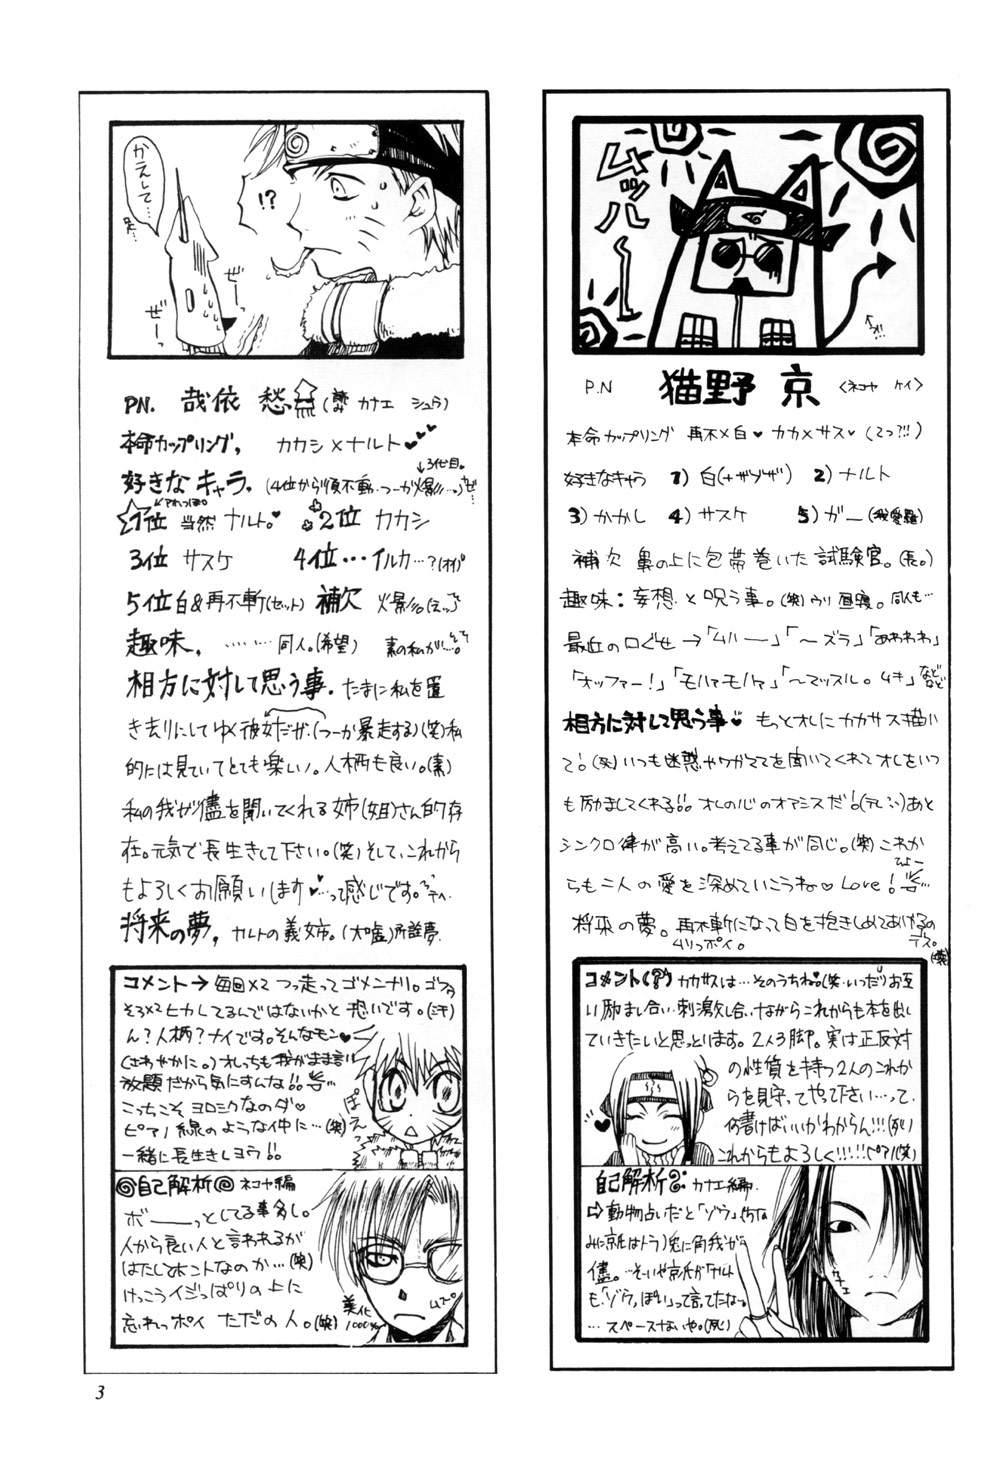 ムッハー
P.N 猫野 京 〈ネコヤ ケイ〉
本命カップリング 再不×白♥ カカ×サス♥ (てっ?!!)
好きなキャラ 1)白(+ザブザ) 2)ナルト
3)かかし 4)サスケ 5)ガー(我愛羅)
補欠 鼻の上に包帯巻いた試験官。(長。)
趣味:妄想と呪う事。(笑)ウリ 昼寝。同人…
最近の口ぐせ→「ムハー」「〜ズラ」「あわわわ」
「オッファー!」「モハァモハァ」「〜マッスル。ムキ」などなど
相方に対して思う事♥ もっとオレにカカサス描い
て。(笑)いつも迷惑やワガママを聞いてくれてオレをいつ
も励ましてくれる!!オレの心のオアシスだ!(テレ)あと
シンクロ律が高い。考えてる事が同じ。(笑)これか
らも二人の愛を深めていこうね♥Love!
将来の夢。再不斬になって白を抱きしめてあげるの
デス。(笑)
ムリっポイ。
コメント(?) カカサスは…そのうちね♥(笑・いつだ)お互
い励まし合い・刺激し合いながらこれからも本を出し
ていきたいと思っとります。2人3脚。実は正反対
の性質を持つ2人のこれか
らを見守ってやって下さい…って、
何書けばいいかわからん!!!(死)
これからもよろしく!!!!!(ピアノ)(笑)
自己解析 カナエ編.
⇨動物占いだと「ゾウ」(ちな
みに京はトラ)兎に角我が
儘。…そーいや京氏が「ナルト
も「ゾウ」っぽい」って言ってたな。
…スペースないや。(死)
かえして…
!?
ぜーっ
ぜーっ
PN. 哉依 愁 (読み カナエ シュウ)
本命カップリング, カカシ×ナルト♥♥♥
↓3代目。
好きなキャラ。(4位から順不動・つーか火影…。)
1位 当然 ナルト。♥ 2位 カカシ
3位 サスケ 4位…イルカ…?(オイ)
5位 白&再不斬(セット) 補欠 火影(えっ)
趣味, ………同人。(希望) 素の私が…。
相方に対して思う事. たまに私を置
き去りにしてゆく彼女だが.(つーか暴走する)(笑)私
的には見ていてとても楽しい。人柄も良い。(素)
私の我が儘を聞いてくれる姉(姐)さん的存
在。元気で長生きして下さい。(笑)そして、これから
もよろしくお願いします♥…って感じです。
将来の夢, カルトの義姉。(大嘘)所詮夢.
コメント→毎回×2 つっ走ってゴメンナリ。ゴフォ
そろ×2ヒカしてるんではないかと恐いです。(汗)
ん?人柄?ナイです。そんなモン♥
(さわやかに。)オレっちも我がまま言い
放題だから気にすんな!!
こっちこそヨロシクなのダ♥
ピアノ線のような仲に…(笑)
一緒に長生きしヨウ!!
ぽえっ
自己解析 ネコヤ編
ボーーっとしてる事多し。
人から良い人と言われるが
はたしてホントなのか…(笑)
けっこうイジっぱりの上に
忘れっポイ ただの人。(笑)
美化
1000%
3